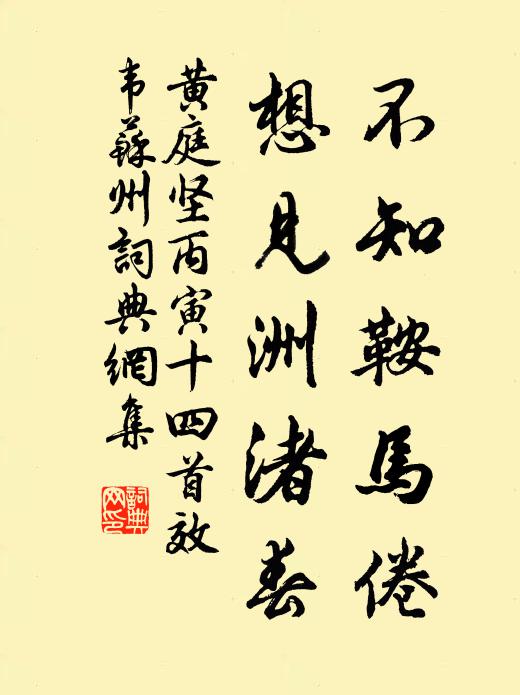 不知鞍馬倦
想見洲渚春
黄庭坚丙寅十四首效
韦蘇州詞典網集
詞典网印